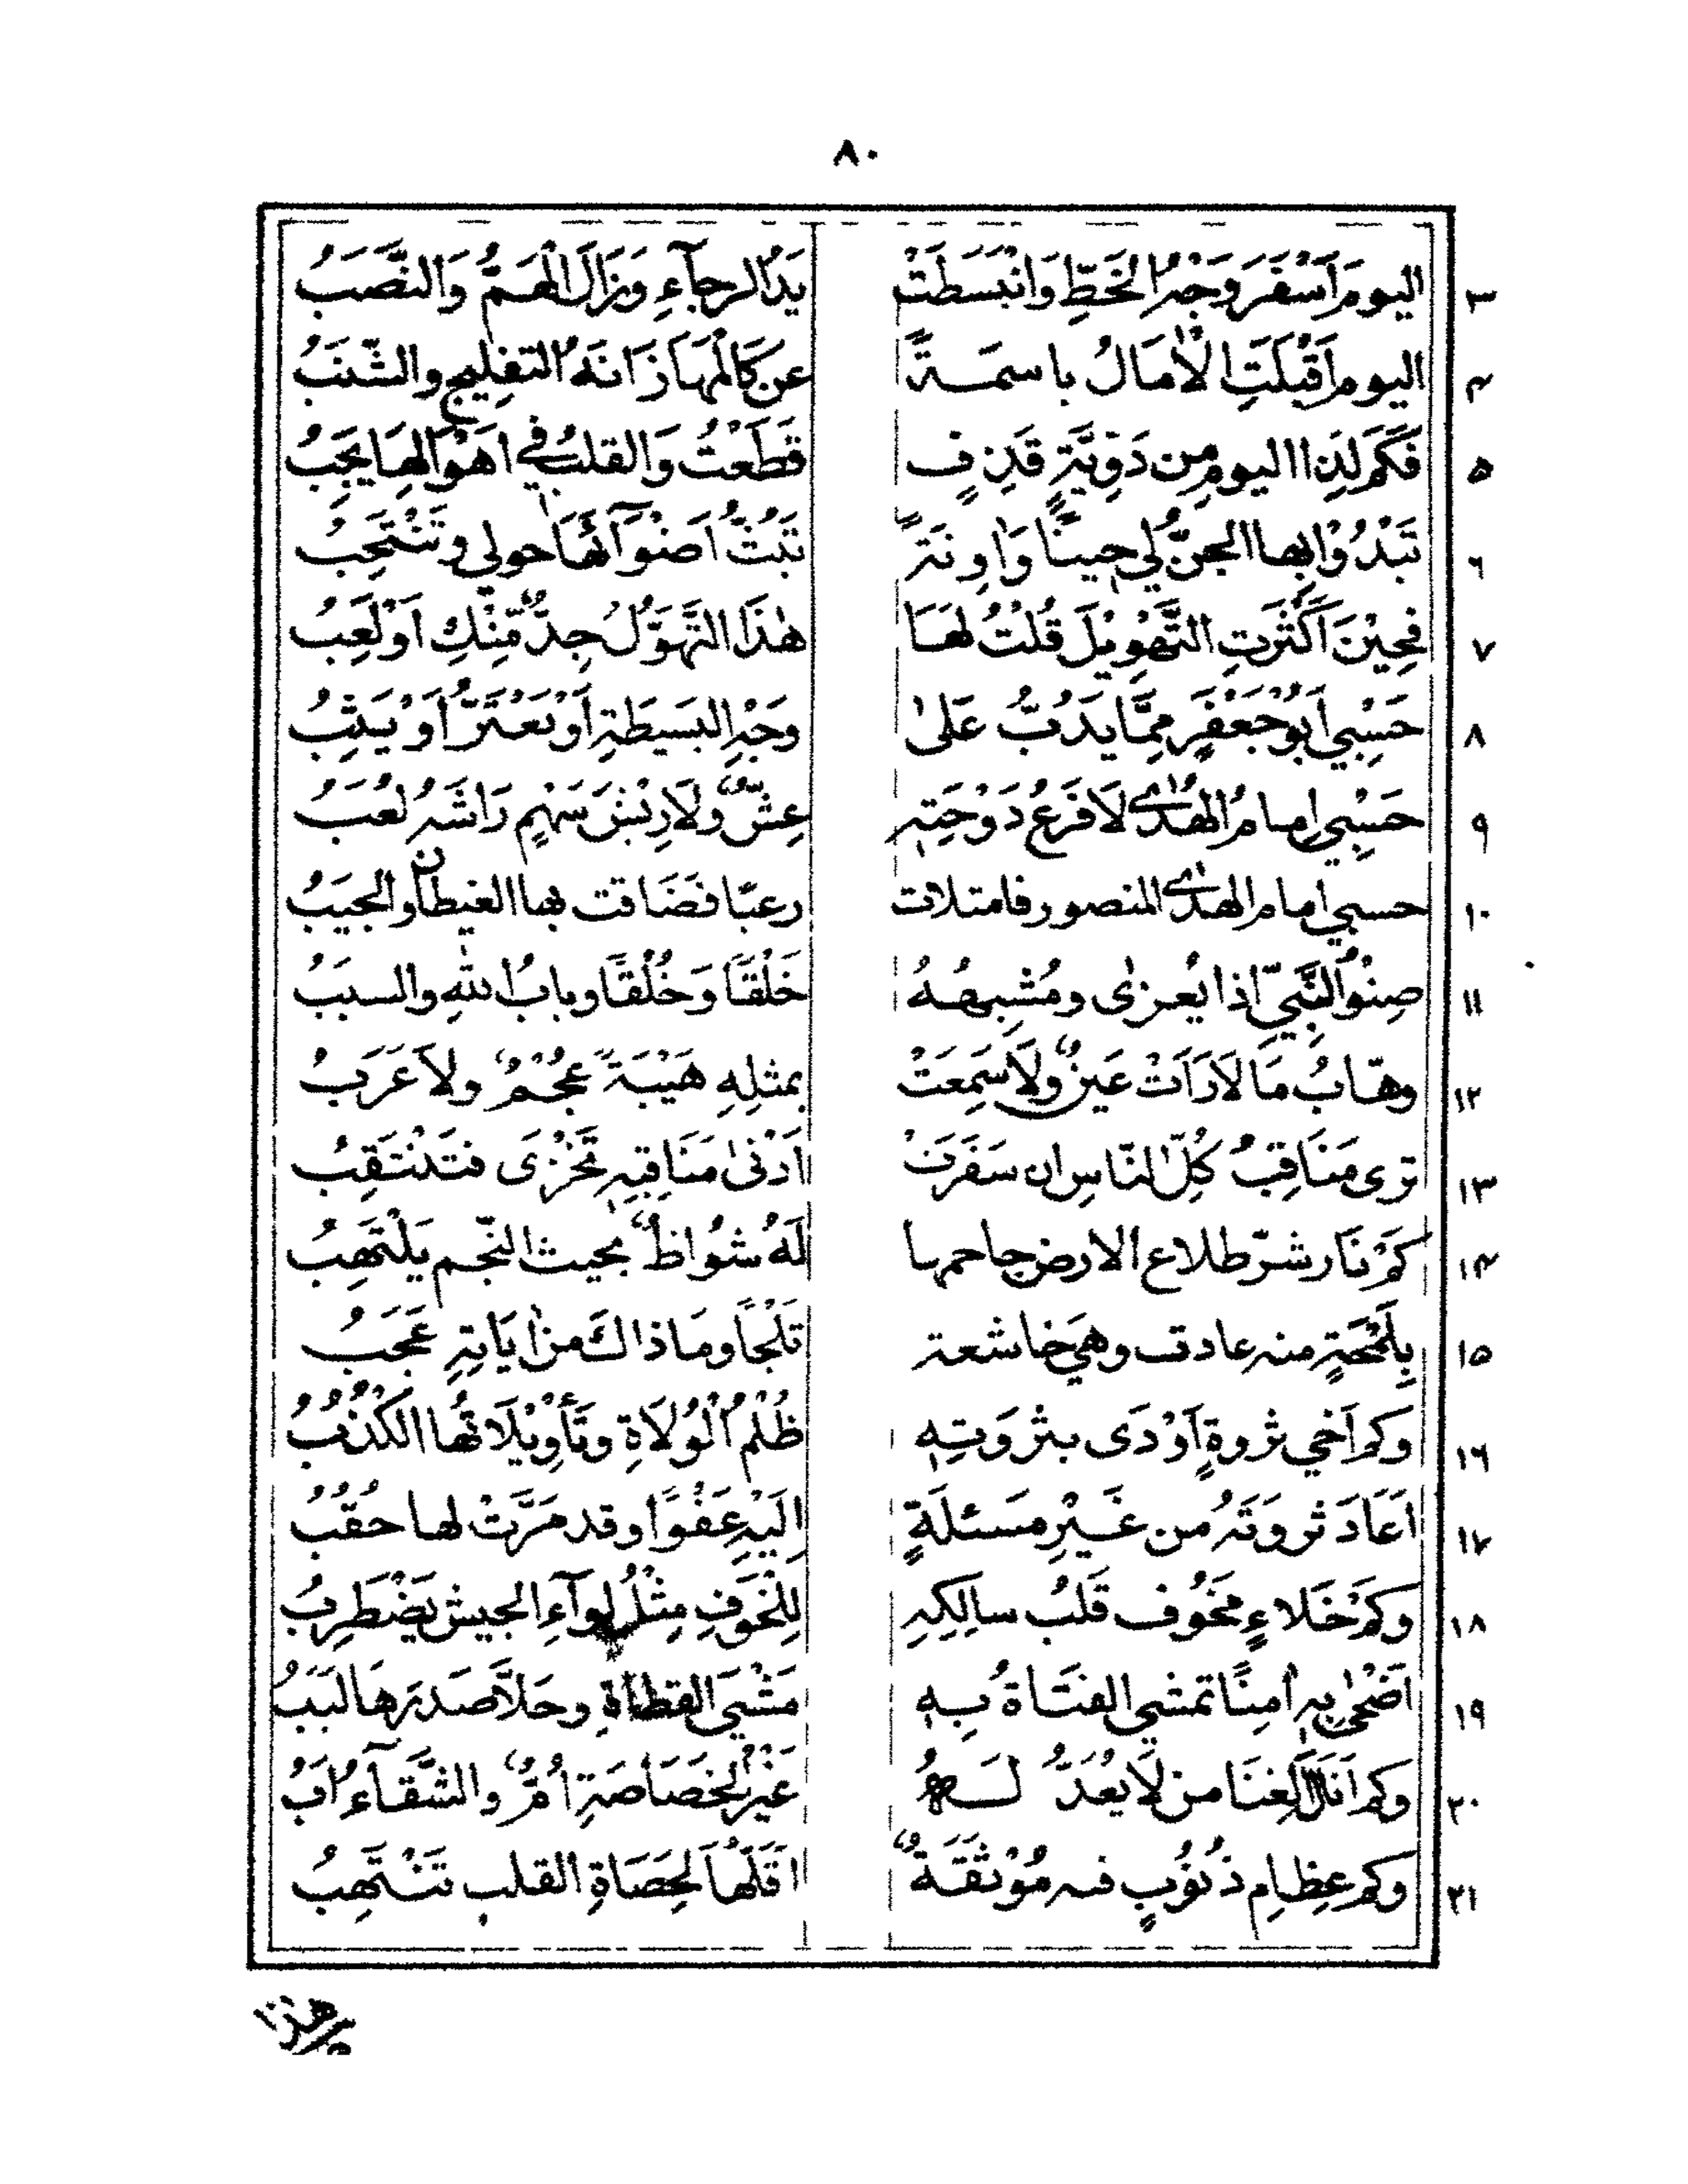 ٨٠
٣ اليومَ اَسْفَرَ وَجْهُ الخَطِّ وَانْبَسَطَتْ يَدُ الرجآءِ وَزَالَ الْهَمُّ وَالنَّصَبُ
٤ اليوم اَقْبَلَتِ الْاٰمَالُ باسمَةً عن كَالْمَهَا زَانَهُ التفلِيج والشَّنَبُ
٥ فَكَم لِذا اليومِ من دَوِيَّةٍ قَذِفٍ قَطَعْتُ وَالقلبُ في اهْوَالِهَا يَجِبُ
٦ تَبْدُوْا بِها الجنُّ لي حينًا وَاٰوِنَةً تَبُثُّ اَضْوَآئَهَا حولي وتَنْتَحِبُ
٧ فحِيْنَ اَكْثَرَتِ التَّهْوِيْلَ قُلْتُ لَهَا هٰذَا التَّهَوُّلُ جِدٌّ مِّنْكِ اَوْ لَعِبُ
٨ حَسْبِي اَبُوْ جَعْفَرٍ مِمَّا يَدُبُّ عَلىٰ وجْهِ البَسِيطَةِ اَوْ يَعْتَرُّ اَوْ يَثِبُ
٩ حَسْبِي اِمامُ الهُدٰى لَا فَرْعُ دَوْحَتِهٖ عِشٌّ ولَا رِيْشَ سَهْمٍ رَاشَهُ لَعَبُ
١٠ حسبي امام الهدٰى المنصور فامتلات رعبًا فضَاقت بها الغيطان والجيَبُ
١١ صِنْوُ النَّبِيِّ اذا يُعزٰى ومُشْبِهُهُ خَلْقًا وَخُلْقًا وبابُ اللهِ والسببُ
١٢ وهّابُ مَا لَا رَاَتْ عَينٌ ولَا سَمِعَتْ بمثلِهِ هَيْبَةً عُجْمٌ ولاَ عَرَبُ
١٣ ترى مَنَاقِبُ كُلِّ النّاسِ ان سَفَرَت اَدْنىٰ مَنَاقِبِهٖ تَخْزَى فتَنْتَقِبُ
١٤ كَمْ نَار شرّ طلاع الارض جاحمها لَهُ شُواظٌ بحيث النّجم يَلْتَهِبُ
١٥ بِلَمْحَةٍ منه عادت وهَي خاشعة ثَلْجًا ومَا ذاكَ من اٰيَاتِهِ عَجَبُ
١٦ وكم اَخي ثروةٍ اَوْدَى بثرْوَتِهٖ ظُلْمُ الْوُلَاةِ وتَأوِيْلَاتُها الكُذُبُ
١٧ اَعَادَ ثروَتَهُ من غَيْرِ مَسئلَةٍ اِلَيْهِ عَفْوًا وقد مَرَّتْ لها حُقُبُ
١٨ وكَمْ خَلاءٍ مَخُوف قَلبُ سالِكِهِ لِلْخَوْفِ مِثْلُ لِوآءِ الجيش يَضْطَرِبُ
١٩ اَضْحٰى بِهٖ اٰمِنًا تمشي الفتَاةُ بِهٖ مَشْيَ القطاةِ وحَلاَّ صَدرَهَا لَبَبُ
٢٠ وكم اَنَالَ الغِنَا من لَا يُعَدُّ لَهُ غَيْرُ الخَصَاصَةِ اُمٌّ والشَّقآءُ اَبُ
٢١ وكم عِظامِ ذُنُوبٍ فيه مُوْثَقَةٌ اقَلُّهَا لِحَصَاةِ القلبِ تَنْتَهِبُ
هذا